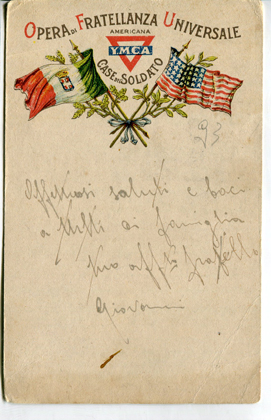 OPERA DI FRATELLANZA UNIVERSALE
AMERICANA
Y.M.C.A
CASE DEL SOLDATO
93
Affettuosi saluti e baci
a tutti di famiglia
tuo aff.mo fratello
Giovanni